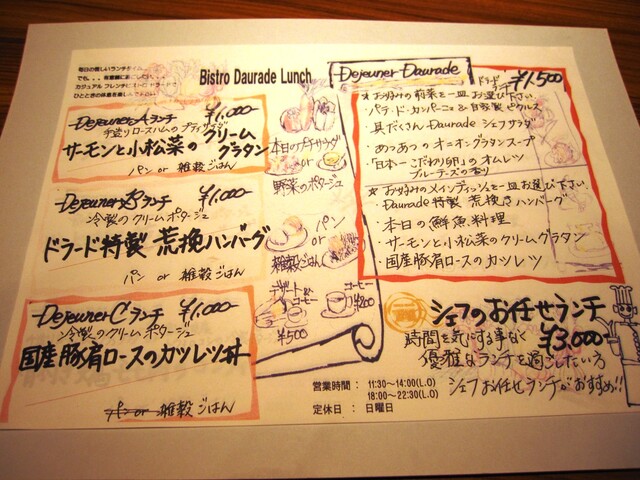 毎日の慌しいランチタイム。
でも、、、
カジュアル フレンチ
ひとときの休息を楽しんで
Bistro Daurade Lunch
Dejeuner A ランチ ¥1,000-
手造りロースハムのプティサラダ
サーモンと小松菜のクリームグラタン
パン or 雑穀ごはん
Dejeuner B ランチ ¥1,000-
冷製のクリームポタージュ
ドラード特製 荒挽ハンバーグ
パン or 雑穀ごはん
Dejeuner C ランチ ¥1,000-
冷製のクリームポタージュ
国産豚肩ロースのカツレツ丼
パン or 雑穀ごはん
本日のプチサラダ
or
野菜のポタージュ
パン
or
雑穀ごはん
デザート&コーヒー
¥500
コーヒー
¥200
Dejeuner Daurade ドラードランチ ¥1,500
★お好みの前菜を一皿お選び下さい
・パテ・ド・カンパーニュ&自家製ピクルス
・具だくさん Daurade シェフサラダ
・あつあつのオニオングラタンスープ
・「日本一こだわり卵」のオムレツ
ブルーチーズの香り
★お好みのメインディッシュを一皿お選び下さい
・Daurade 特製 荒挽きハンバーグ
・本日の鮮魚料理
・サーモンと小松菜のクリームグラタン
・国産豚肩ロースのカツレツ
シェフのお任せランチ
¥3,000
時間を気にする事なく
優雅なランチを過ごしたい方
シェフお任せランチがおすすめ!!
営業時間 : 11:30〜14:00(L.O)
18:00〜22:30(L.O)
定休日 : 日曜日